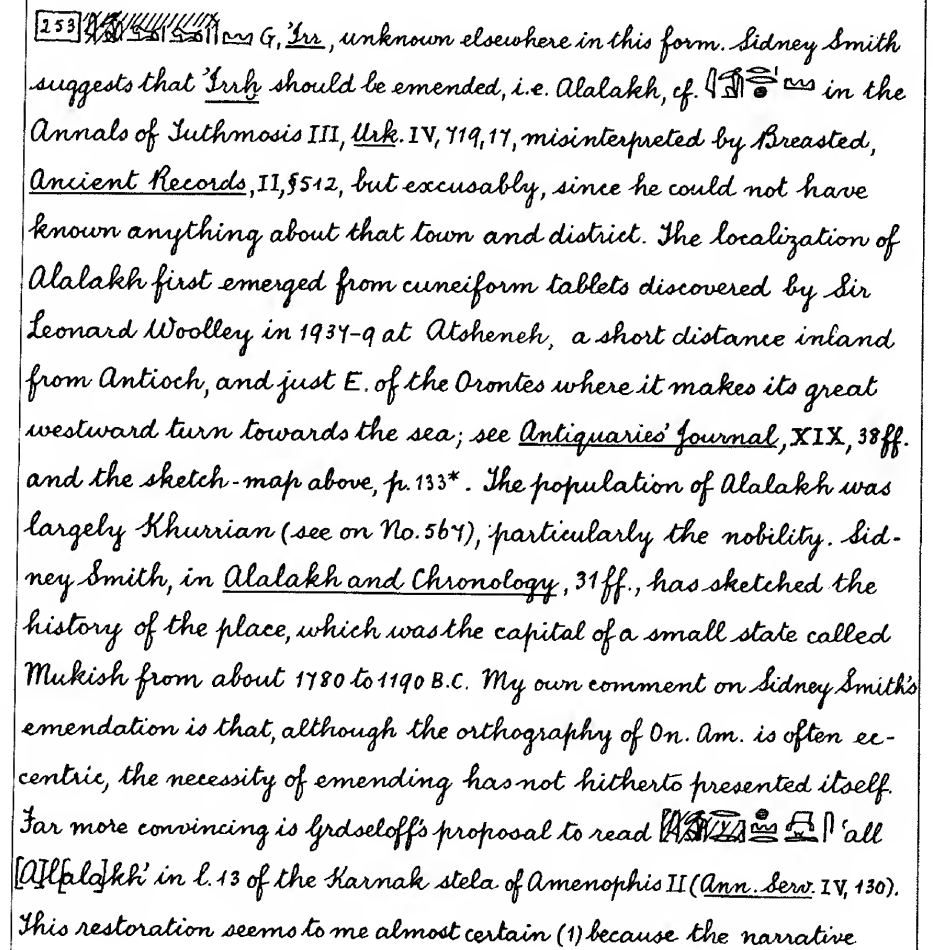 253 G, 'Irr, unknown elsewhere in this form. Sidney Smith
suggests that 'Irrḫ should be emended, i.e. Alalakh, cf. in the
Annals of Tuthmosis III, Urk. IV, 719,17, misinterpreted by Breasted,
Ancient Records, II, §512, but excusably, since he could not have
known anything about that town and district. The localization of
Alalakh first emerged from cuneiform tablets discovered by Sir
Leonard Woolley in 1937-9 at Atsheneh, a short distance inland
from Antioch, and just E. of the Orontes where it makes its great
westward turn towards the sea; see Antiquaries' Journal, XIX, 38ff.
and the sketch-map above, p. 133*. The population of Alalakh was
largely Khurrian (see on No. 567), particularly the nobility. Sid-
ney Smith, in Alalakh and Chronology, 31ff., has sketched the
history of the place, which was the capital of a small state called
Mukish from about 1780 to 1190 B.C. My own comment on Sidney Smith's
emendation is that, although the orthography of On. Am. is often ec-
centric, the necessity of emending has not hitherto presented itself.
Far more convincing is Grdseloff's proposal to read 'all
[A]l[ala]kh' in l. 13 of the Karnak stela of Amenophis II (Ann. Serv. IV, 130).
This restoration seems to me almost certain (1) because the narrative